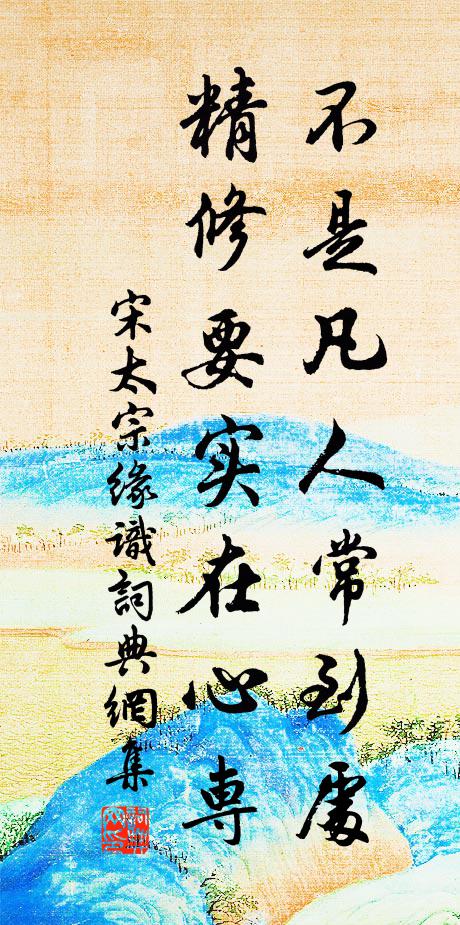 不是凡人常到處
精修要实在心専
宋太宗緣識詞典網集